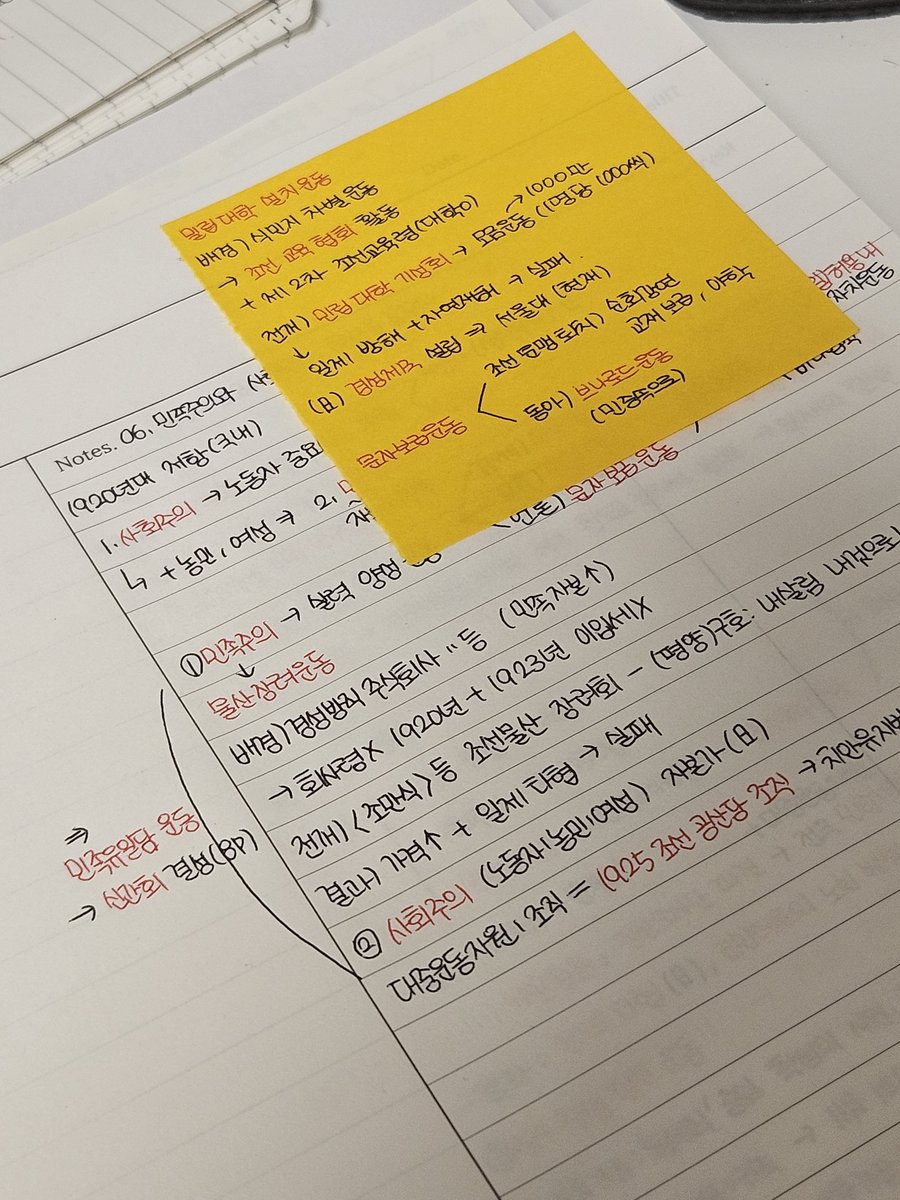 민립대학 설치운동
배경) 식민지 차별운동
→ 조선교육협회 활동
+ 제2차 조선교육령(대학O) → 1000만
전개) 민립대학 기성회 → 모금운동 (1명당 1000씩)
↓
일제 방해 + 자연재해 → 실패
(日) 경성제국 설립 ⇒ 서울대 (현재)
조선) 문맹퇴치) 순회강연
교재 보급, 야학
문자보급운동 <
동아) 브나로드운동
(민중속으로)
허용 내
자치운동
Notes. 06. 민족주의와 사
1920년대 저항(국내)
1. 사회주의 → 노동자 중요
↳ + 농민, 여성 ⇒ 2.
① 민족주의 → 실력 양성 <언론> 문자보급운동
↓
물산장려운동
배경) 경성방직 주식회사 " 등 (민족자본↑)
→ 회사령X 1920년 + 1923년 X
전개) <조만식> 등 조선물산 장려회 - (평양) 구호: 내살림 내것으로
결과) 가격↑ + 일제 타협 → 실패
② 사회주의 (노동자, 농민, 여성) 자본가(日)
대중운동지원, 조직 = 1925 조선 공산당 조직 → 치안유지
⇒
민족유일당 운동
→ 신간회 결성